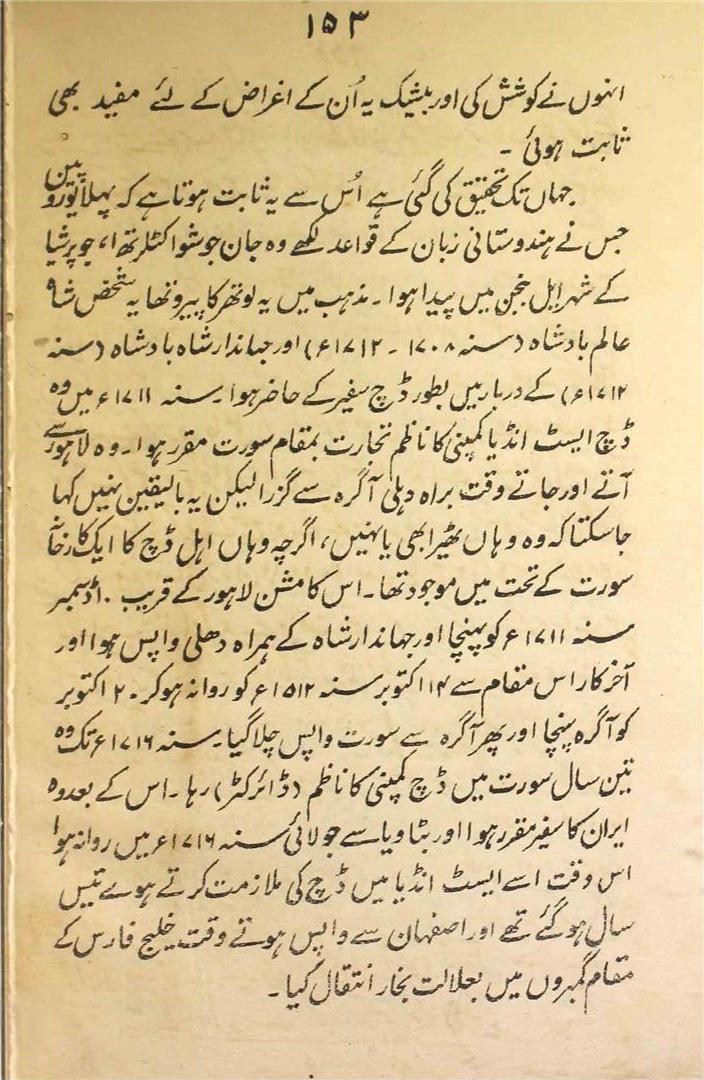 ۱۵۳
انہوں نے کوشش کی اور بیشک یہ اُن کے اغراض کے لئے مفید بھی
ثابت ہوئی ۔
جہاں تک تحقیق کی گئی ہے اُس سے یہ ثابت ہوتا ہے کہ پہلا یوروپین
جس نے ہندوستانی زبان کے قواعد لکھے وہ جان جوشوا کٹلر تھا، جو پرشیا
کے شہر ایل بنجن میں پیدا ہوا ۔ مذہب میں یہ لوتھر کا پیرو تھا یہ شخص شاہ
عالم بادشاہ (سنہ ۱۷۰۸ ۔ ۱۷۱۲ء) اور جہاندار شاہ بادشاہ (سنہ
۱۷۱۲ء) کے دربار میں بطور ڈچ سفیر کے حاضر ہوا ۔ سنہ ۱۷۱۱ء میں وہ
ڈچ ایسٹ انڈیا کمپنی کا ناظم تجارت بمقام سورت مقرر ہوا ۔ وہ لاہور سے
آتے اور جاتے وقت براہ دہلی آگرہ سے گزرا لیکن یہ بالیقین نہیں کہا
جا سکتا کہ وہ وہاں ٹھیرا بھی یا نہیں، اگرچہ وہاں اہل ڈچ کا ایک کارخانہ
سورت کے تحت میں موجود تھا ۔ اس کا مشن لاہور کے قریب ۱۰ دسمبر
سنہ ۱۷۱۱ء کو پہنچا اور جہاندار شاہ کے ہمراہ دھلی واپس ہوا اور
آخر کار اس مقام سے ۱۴ اکتوبر سنہ ۱۵۱۲ء کو روانہ ہو کر ۲۰ اکتوبر
کو آگرہ پہنچا اور پھر آگرہ سے سورت واپس چلا گیا ۔ سنہ ۱۷۱۶ء تک وہ
تین سال سورت میں ڈچ کمپنی کا ناظم (ڈائرکٹر) رہا ۔ اس کے بعد وہ
ایران کا سفیر مقرر ہوا اور بٹاویا سے جولائی سنہ ۱۷۱۶ء میں روانہ ہوا
اس وقت اسے ایسٹ انڈیا میں ڈچ کی ملازمت کرتے ہوے تیس
سال ہو گئے تھے اور اصفہان سے واپس ہوتے وقت خلیج فارس کے
مقام گمبروں میں بعلالت بخار انتقال کیا ۔